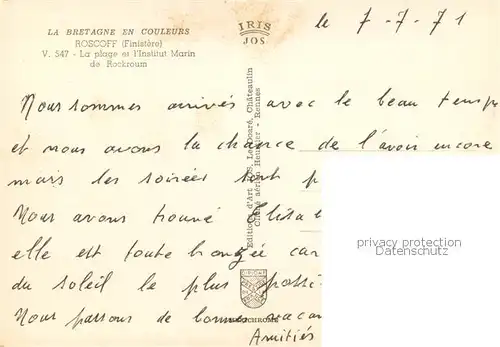 LA BRETAGNE EN COULEURS
ROSCOFF (Finistère)
V. 547 - La plage et l'Institut Marin
de Rockroum
IRIS
JOS
le 7-7-71
Nous sommes arrivés avec le beau temps
et nous avons la chance de l'avoir encore
mais les soirées sont
Nous avons trouvé
elle est toute bronzée car
du soleil le plus
Nous passons de bonnes vacan
Amitiés
Editions d'Art JOS Le Doaré, Châteaulin
Cliché aérien Heurtier - Rennes
privacy protection
Datenschutz